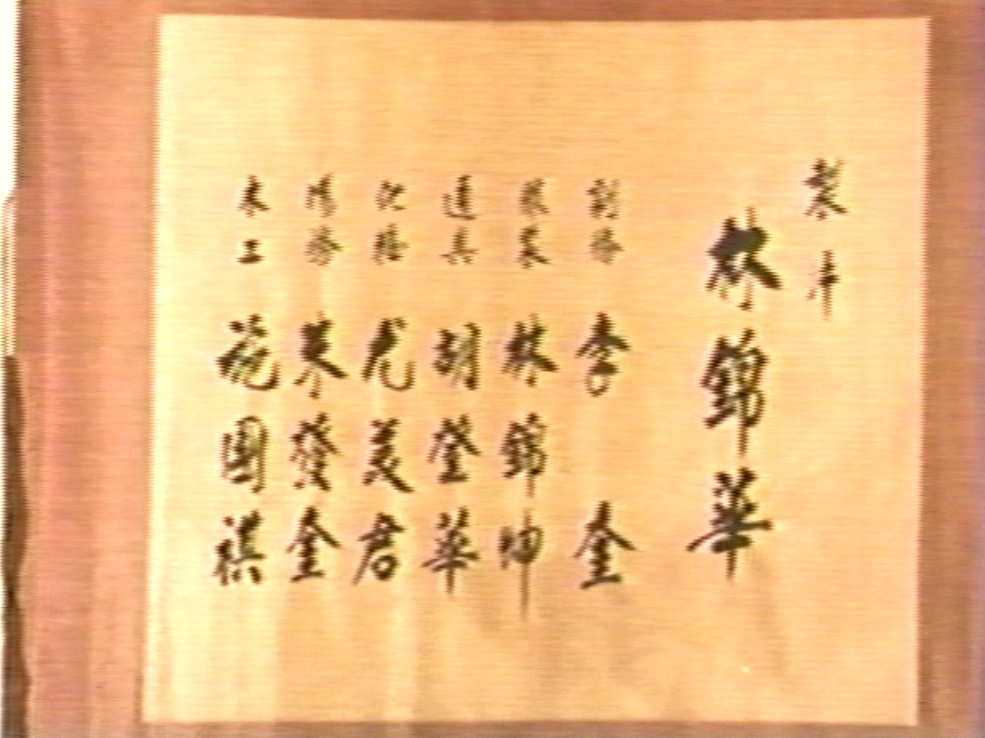 製片
林錦華
劇務 李奎
服裝 林錦坤
道具 胡登華
化粧 尤美君
場務 發金
木工 施國祺